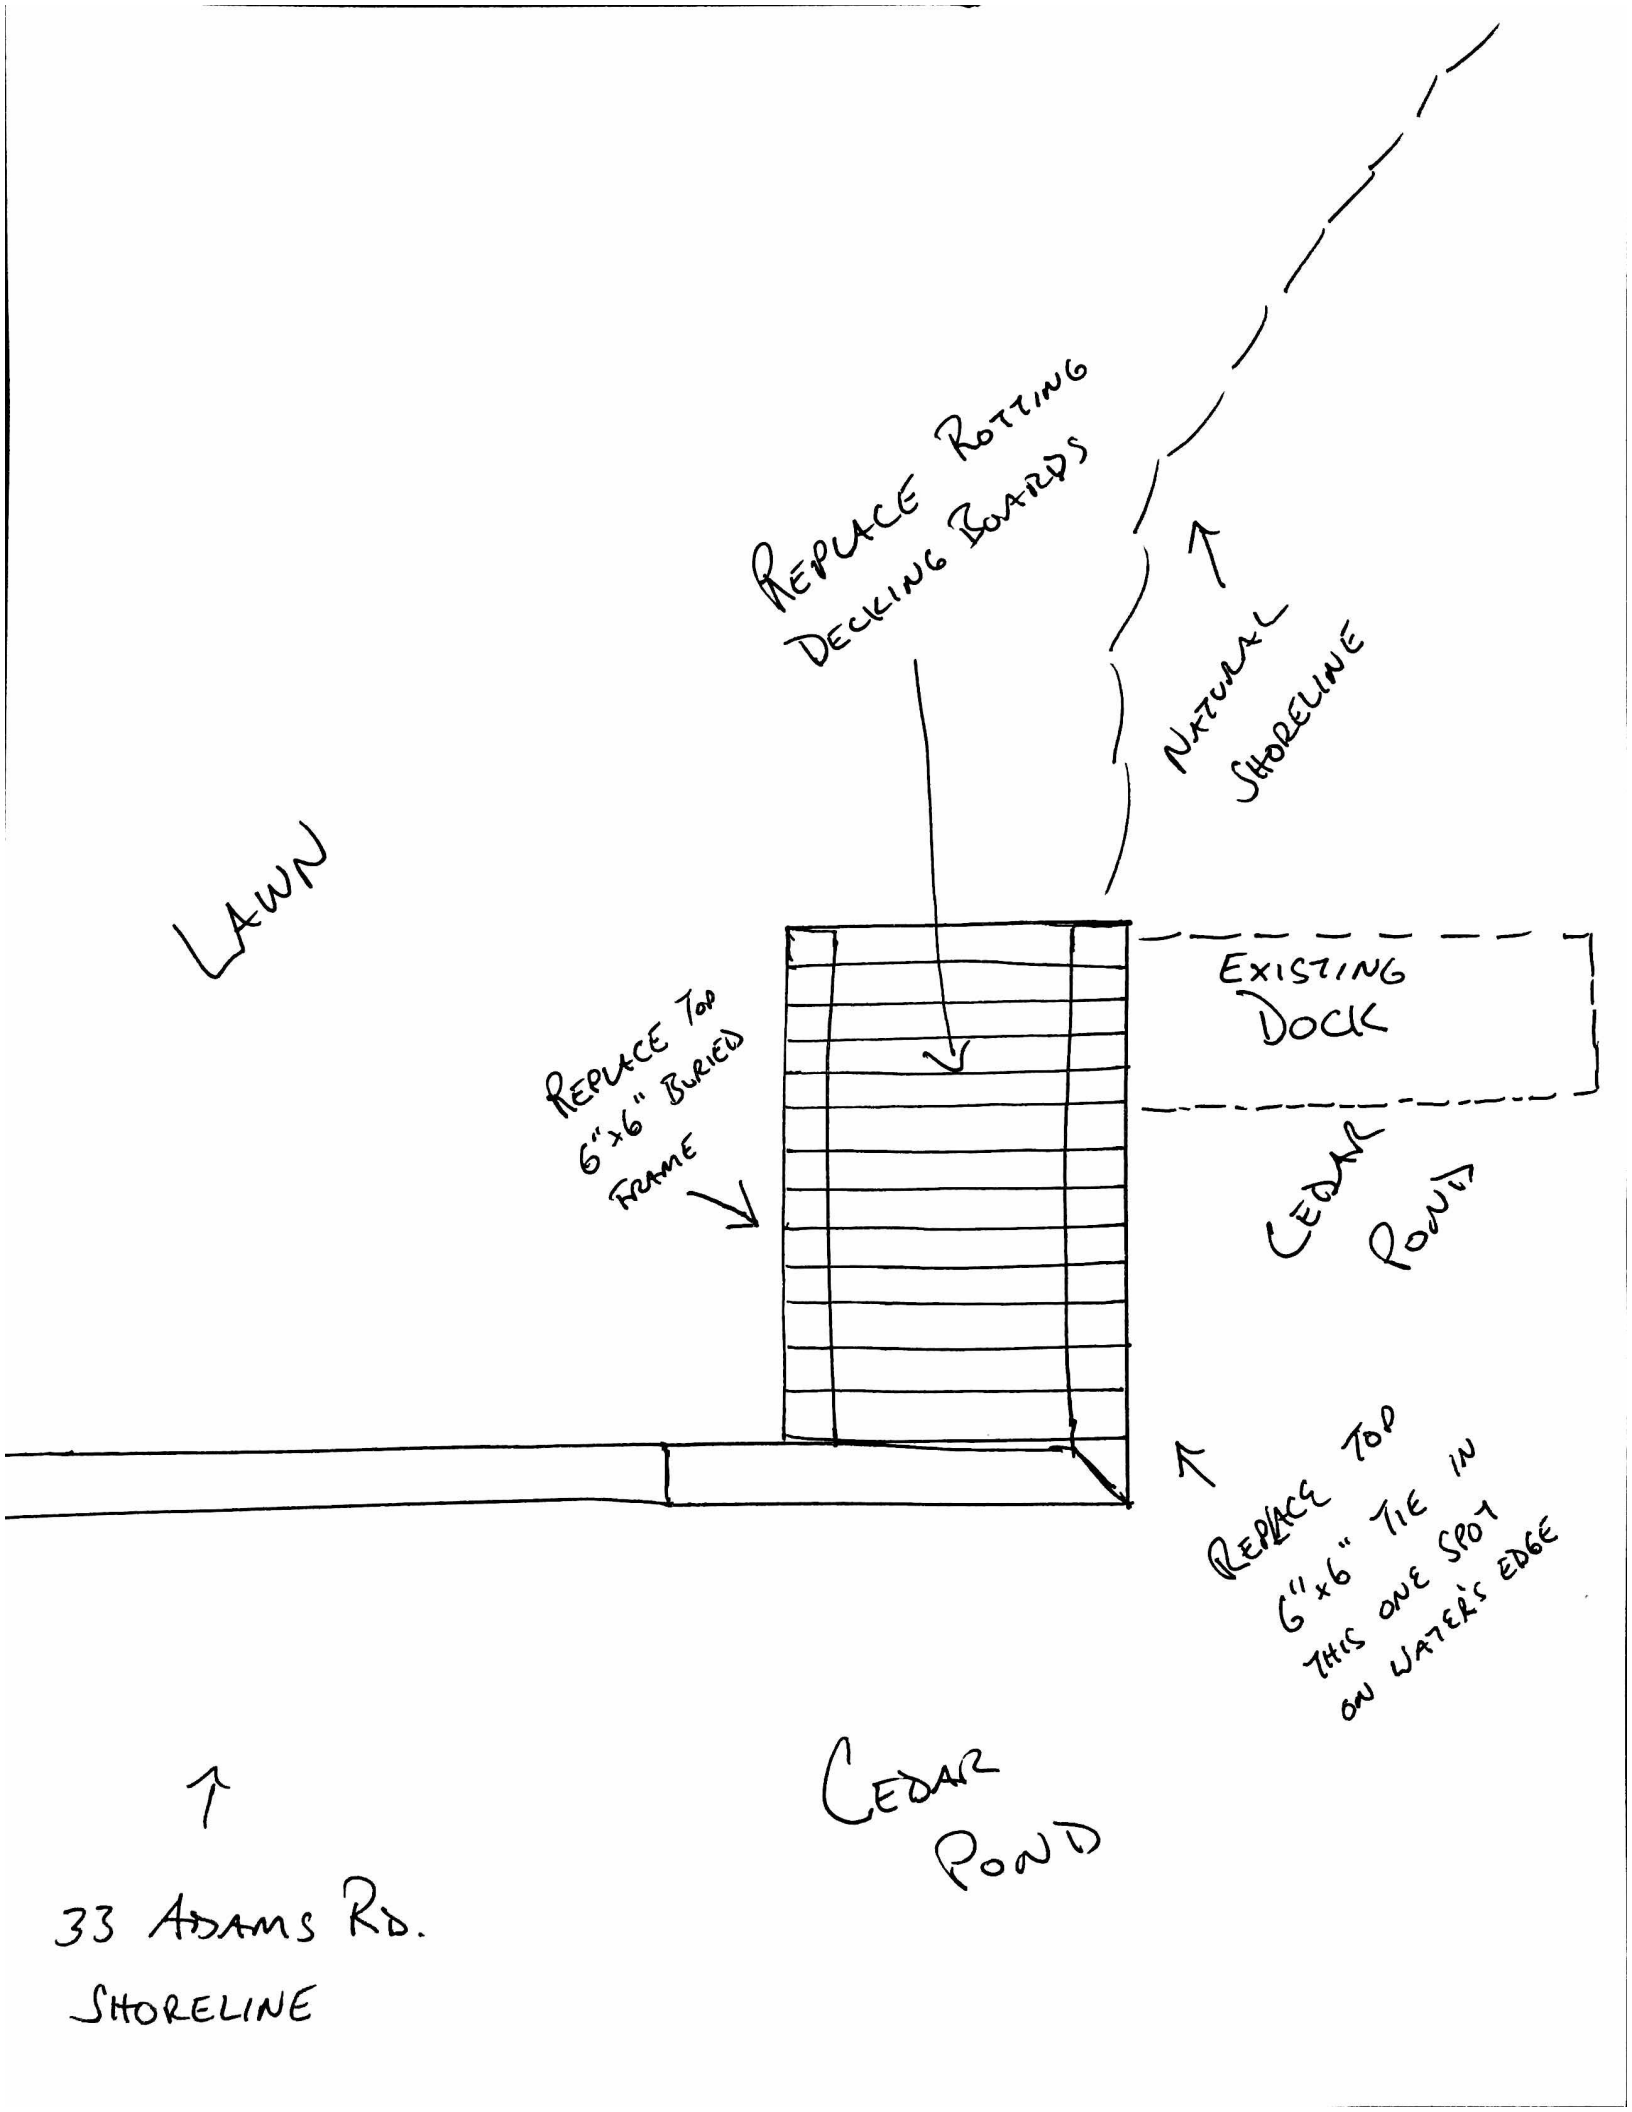 REPLACE ROTTING
DECKING BOARDS
NATURAL
SHORELINE
LAWN
REPLACE TOP
6"x6" BURIED
FRAME
EXISTING
DOCK
CEDAR
POND
REPLACE TOP
6"x6" TIE IN
THIS ONE SPOT
ON WATER'S EDGE
CEDAR
POND
33 ADAMS RD.
SHORELINE